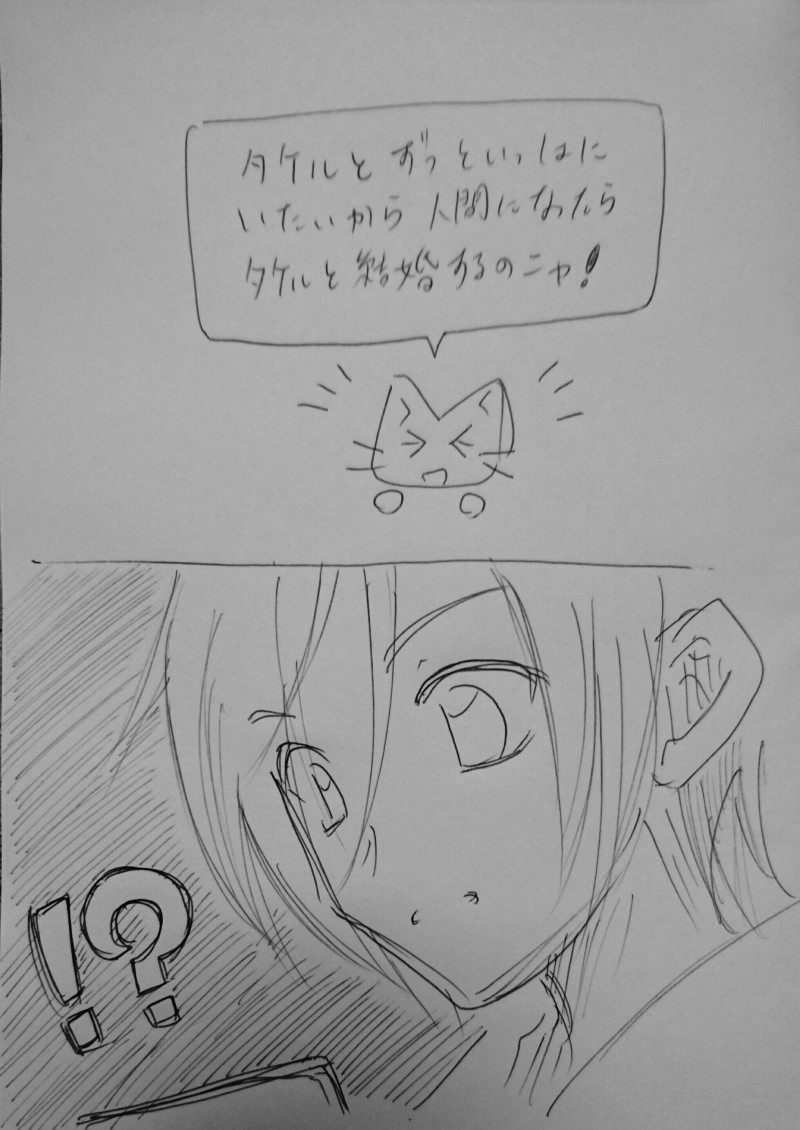 タケルと ずっといっしょに
いたいから 人間になったら
タケルと結婚するのニャ!
!?